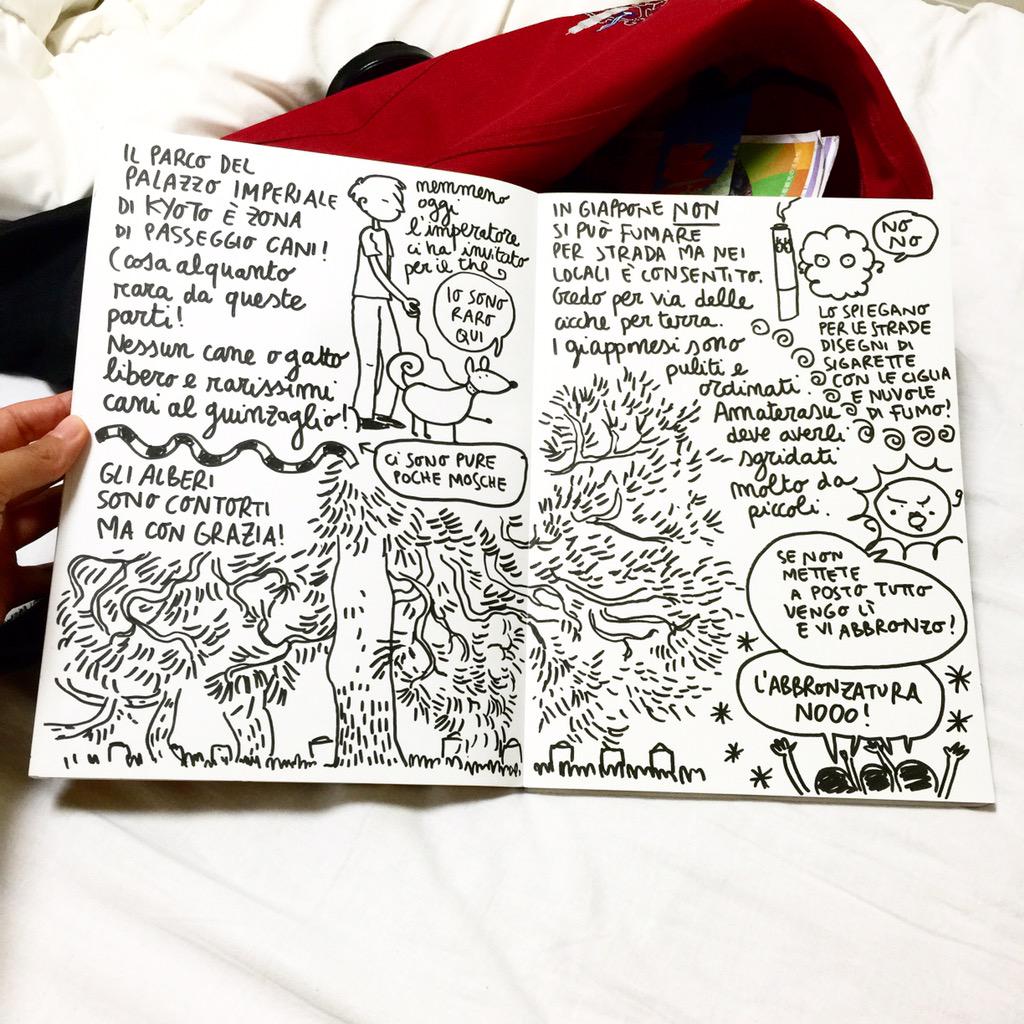 IL PARCO DEL
PALAZZO IMPERIALE
DI KYOTO È ZONA
DI PASSEGGIO CANI!
(cosa alquanto
rara da queste
parti!
Nessun cane o gatto
libero e rarissimi
cani al guinzaglio!
nemmeno
oggi
l'imperatore
ci ha invitato
per il the
IO SONO
RARO
QUI
CI SONO PURE
POCHE MOSCHE
GLI ALBERI
SONO CONTORTI
MA CON GRAZIA!
IN GIAPPONE NON
SI PUÒ FUMARE
PER STRADA MA NEI
LOCALI È CONSENTITO.
Credo per via delle
cicche per terra.
I giapponesi sono
puliti e
ordinati.
Amaterasu
deve averli
sgridati
molto da
piccoli.
NO
NO
LO SPIEGANO
PER LE STRADE
DISEGNI DI
SIGARETTE
CON LE CIGLIA
E NUVOLE
DI FUMO!
SE NON
METTETE
A POSTO TUTTO
VENGO LÌ
E VI ABBRONZO!
L'ABBRONZATURA
NOOO!